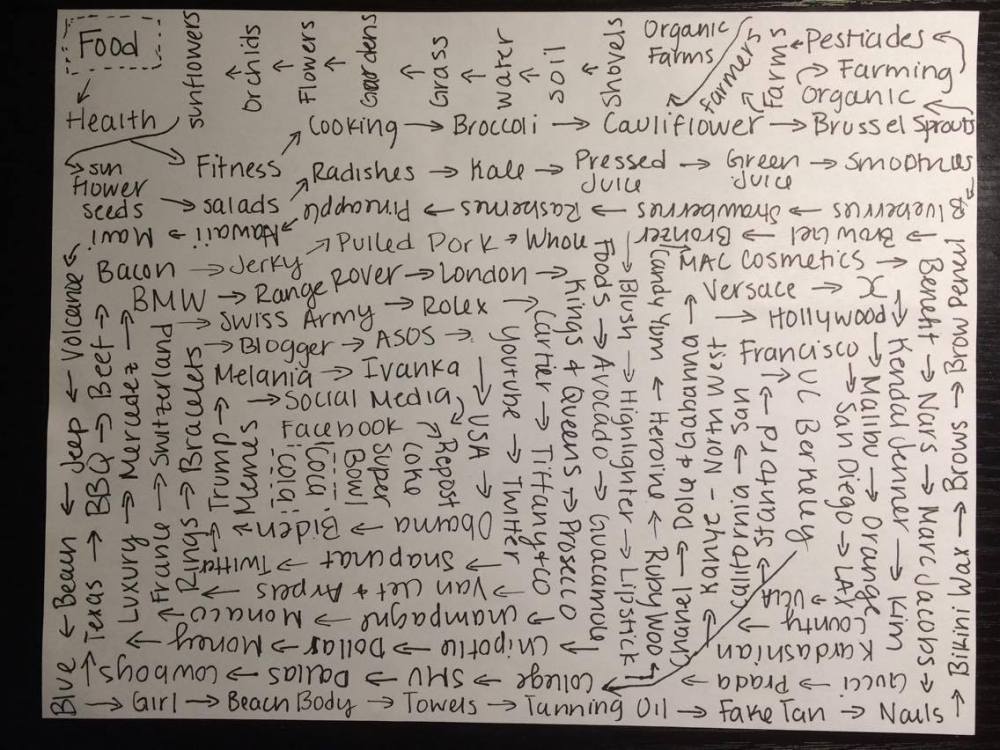 Food
Health
Fitness
Cooking → Broccoli → Cauliflower → Brussel Sprouts
Organic
Farming
Pesticides
Farms
farmers
Organic
Farms
Shovels
soil
water
Grass
Gardens
Flowers
Orchids
sunflowers
sun
flower
seeds → salads
Radishes → Kale → Pressed Juice → Green Juice → Smoothies
Blueberries → Strawberries → Rasberries → Pineapple
Hawaii → Maui
Volcano
Jeep
Bean
Blue
Girl → Beach Body → Towels → Tanning Oil → Fake Tan → Nails
Bikini Wax → Brows → Brow Pencil
Brow Gel → Bronzer
Blush → Highlighter → Lipstick
Ruby Woo → Heroine → Candy Yum
MAC Cosmetics
Benefit → Nars → Marc Jacobs
Gucci → Prada
Chanel → Dolce & Gabanna
Versace
Hollywood
Malibu → Orange
County
UCLA
Kendal Jenner → Kim
Kardashian
Kanye - North West
California → San
Francisco
San Diego → LAX
Stanford
UC Berkeley
College → SMU → Dallas → Cowboys
Texas → BBQ → Beef
Bacon → Jerky
Pulled Pork → Whole
Foods → Avocado → Guacamole
Chipotle → Dollar → Money
Luxury → Mercedez
BMW → Range Rover → London
Kings & Queens → Prosecco
Champagne → Monaco
France → Switzerland
Swiss Army → Rolex
Cartier → Tiffany & Co
Van Clef & Arpels
Rings → Bracelets
Blogger → ASOS
Youtube → Twitter
Snapchat → Twitter
Trump
Melania → Ivanka
USA
Obama → Biden
Memes
Social Media
Facebook
Repost
Coke
Super
Bowl
Coca
Cola